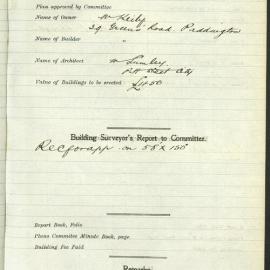 Plan approved by Committee
Name of Owner
39 Greens Road Paddington
Name of Builder "
Name of Architect
Pitt Street City
Value of Buildings to be erected £450
Building Surveyor's Report to Committee.
Rec for app on 58 x 156
Report Book, Folio
Plans Committee Minute Book, page
Building Fee Paid
Remarks